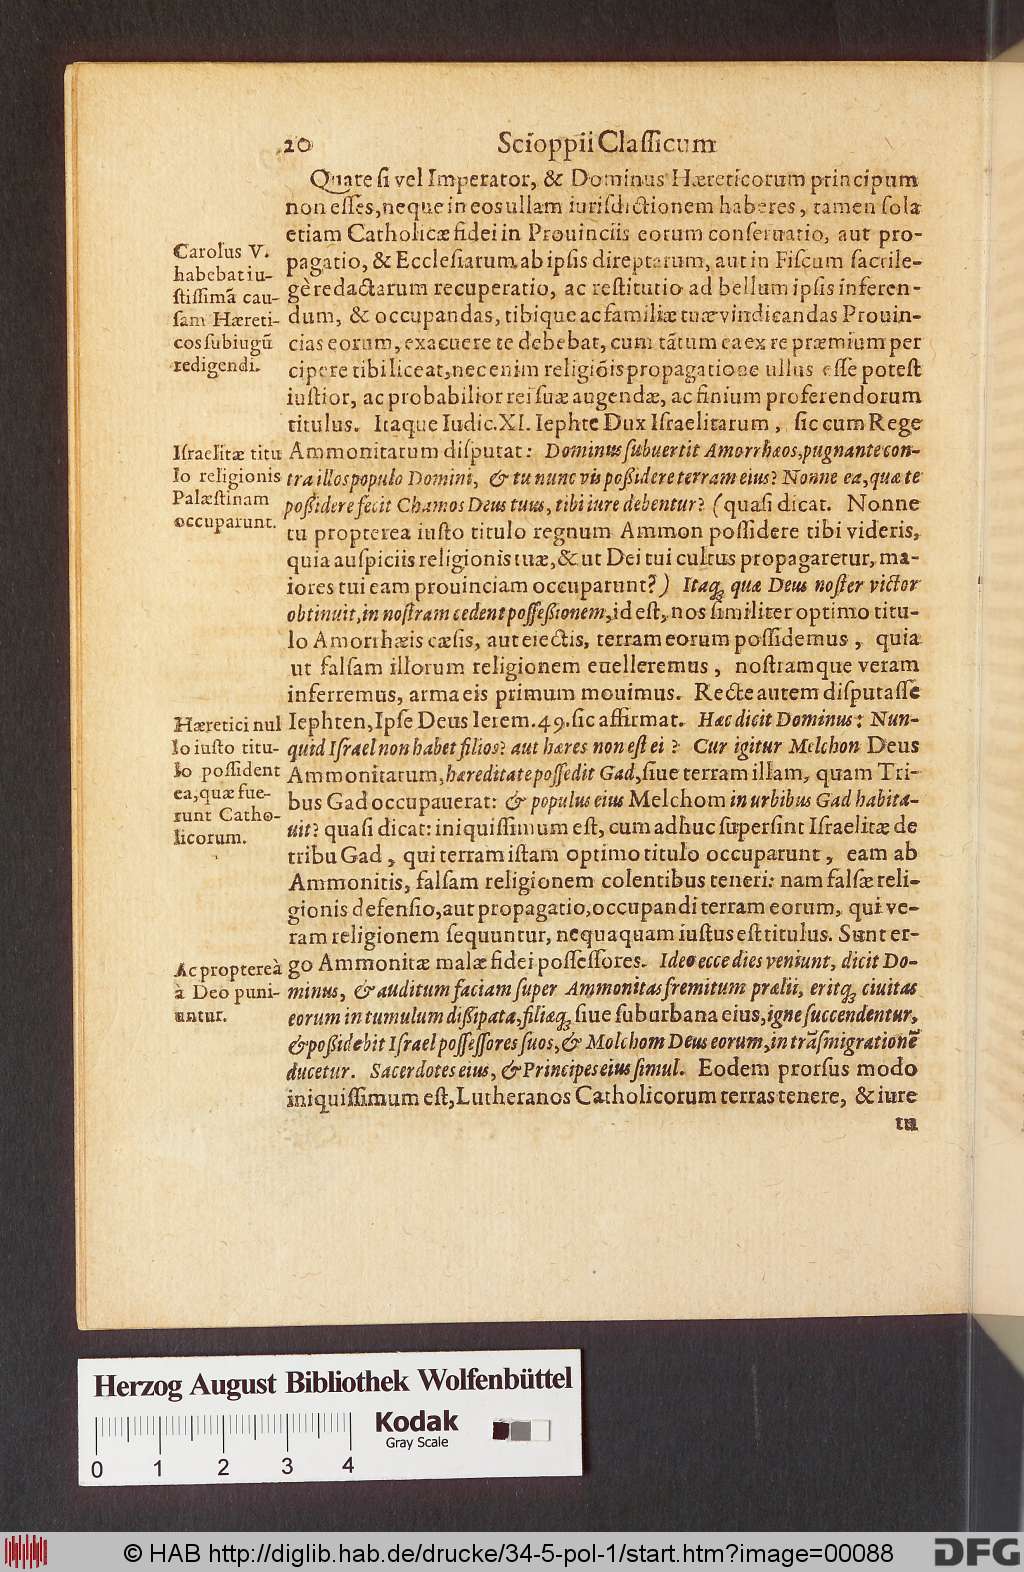 20 Scioppii Classicum
Quare si vel Imperator, & Dominus Hæreticorum principum
non esses, neque in eos ullam iurisdictionem haberes, tamen sola
etiam Catholicæ fidei in Prouinciis eorum conseruatio, aut pro-
pagatio, & Ecclesiarum ab ipsis direptarum, aut in Fiscum sacrile-
gè redactarum recuperatio, ac restitutio ad bellum ipsis inferen-
dum, & occupandas, tibique ac familiæ tuæ vindicandas Prouin-
cias eorum, exacuere te debebat, cum tātum ea ex re præmium per
cipere tibi liceat, nec enim religiōis propagatione ullus esse potest
iustior, ac probabilior rei suæ augendæ, ac finium proferendorum
titulus. Itaque Iudic. XI. Iephte Dux Israelitarum, sic cum Rege
Ammonitarum disputat: Dominus subuertit Amorrhæos, pugnante con-
tra illos populo Domini, & tu nunc vis poßidere terram eius? Nonne ea, quæ te
poßidere fecit Chamos Deus tuus, tibi iure debentur? (quasi dicat. Nonne
tu propterea iusto titulo regnum Ammon possidere tibi videris,
quia auspiciis religionis tuæ, & ut Dei tui cultus propagaretur, ma-
iores tui eam prouinciam occuparunt?) Itaq; quæ Deus noster victor
obtinuit, in nostram cedent posseßionem, id est, nos similiter optimo titu-
lo Amorrhæis cæsis, aut eiectis, terram eorum possidemus, quia
ut falsam illorum religionem euelleremus, nostramque veram
inferremus, arma eis primum mouimus. Recte autem disputasse
Iephten, Ipse Deus Ierem. 49. sic affirmat. Hæc dicit Dominus: Nun-
quid Israel non habet filios? aut hæres non est ei? Cur igitur Melchon Deus
Ammonitarum, hæreditate possedit Gad, siue terram illam, quam Tri-
bus Gad occupauerat: & populus eius Melchom in urbibus Gad habita-
uit? quasi dicat: iniquissimum est, cum adhuc supersint Israelitæ de
tribu Gad, qui terram istam optimo titulo occuparunt, eam ab
Ammonitis, falsam religionem colentibus teneri: nam falsæ reli-
gionis defensio, aut propagatio, occupandi terram eorum, qui ve-
ram religionem sequuntur, nequaquam iustus est titulus. Sunt er-
go Ammonitæ malæ fidei possessores. Ideo ecce dies veniunt, dicit Do-
minus, & auditum faciam super Ammonitas fremitum prælii, eritq; ciuitas
eorum in tumulum dißipata, filiæq; siue suburbana eius, igne succendentur,
& poßidebit Israel possessores suos, & Molchom Deus eorum, in trāsmigrationē
ducetur. Sacerdotes eius, & Principes eius simul. Eodem prorsus modo
iniquissimum est, Lutheranos Catholicorum terras tenere, & iure
tu
Carolus V.
habebat iu-
stissimā cau-
sam Hæreti-
cos sub iugū
redigendi.
Israelitæ titu
lo religionis
Palæstinam
occuparunt.
Hæretici nul
lo iusto titu-
lo possident
ea, quæ fue-
runt Catho-
licorum.
Ac propterea
à Deo puni-
untur.
Herzog August Bibliothek Wolfenbüttel
Kodak
Gray Scale
0 1 2 3 4
© HAB http://diglib.hab.de/drucke/34-5-pol-1/start.htm?image=00088
DFG